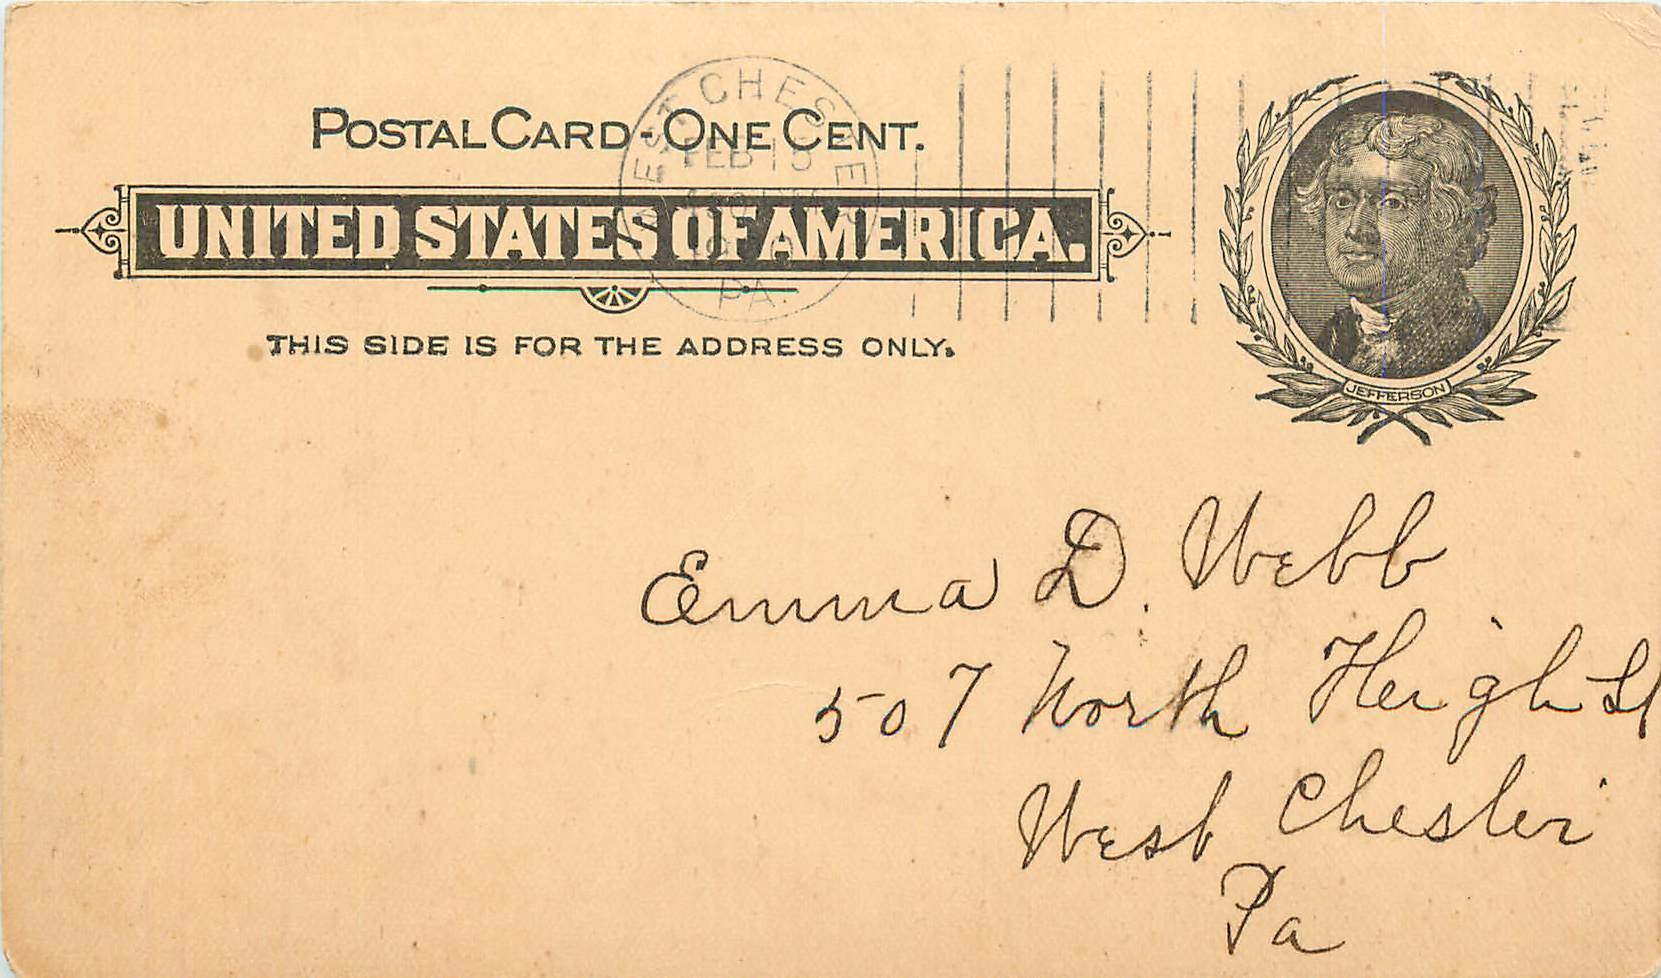 POSTAL CARD - ONE CENT.
UNITED STATES OF AMERICA.
THIS SIDE IS FOR THE ADDRESS ONLY.
WEST CHESTER
FEB 15
PA.
JEFFERSON
Emma D. Webb
507 North Heigh St
West Chester
Pa